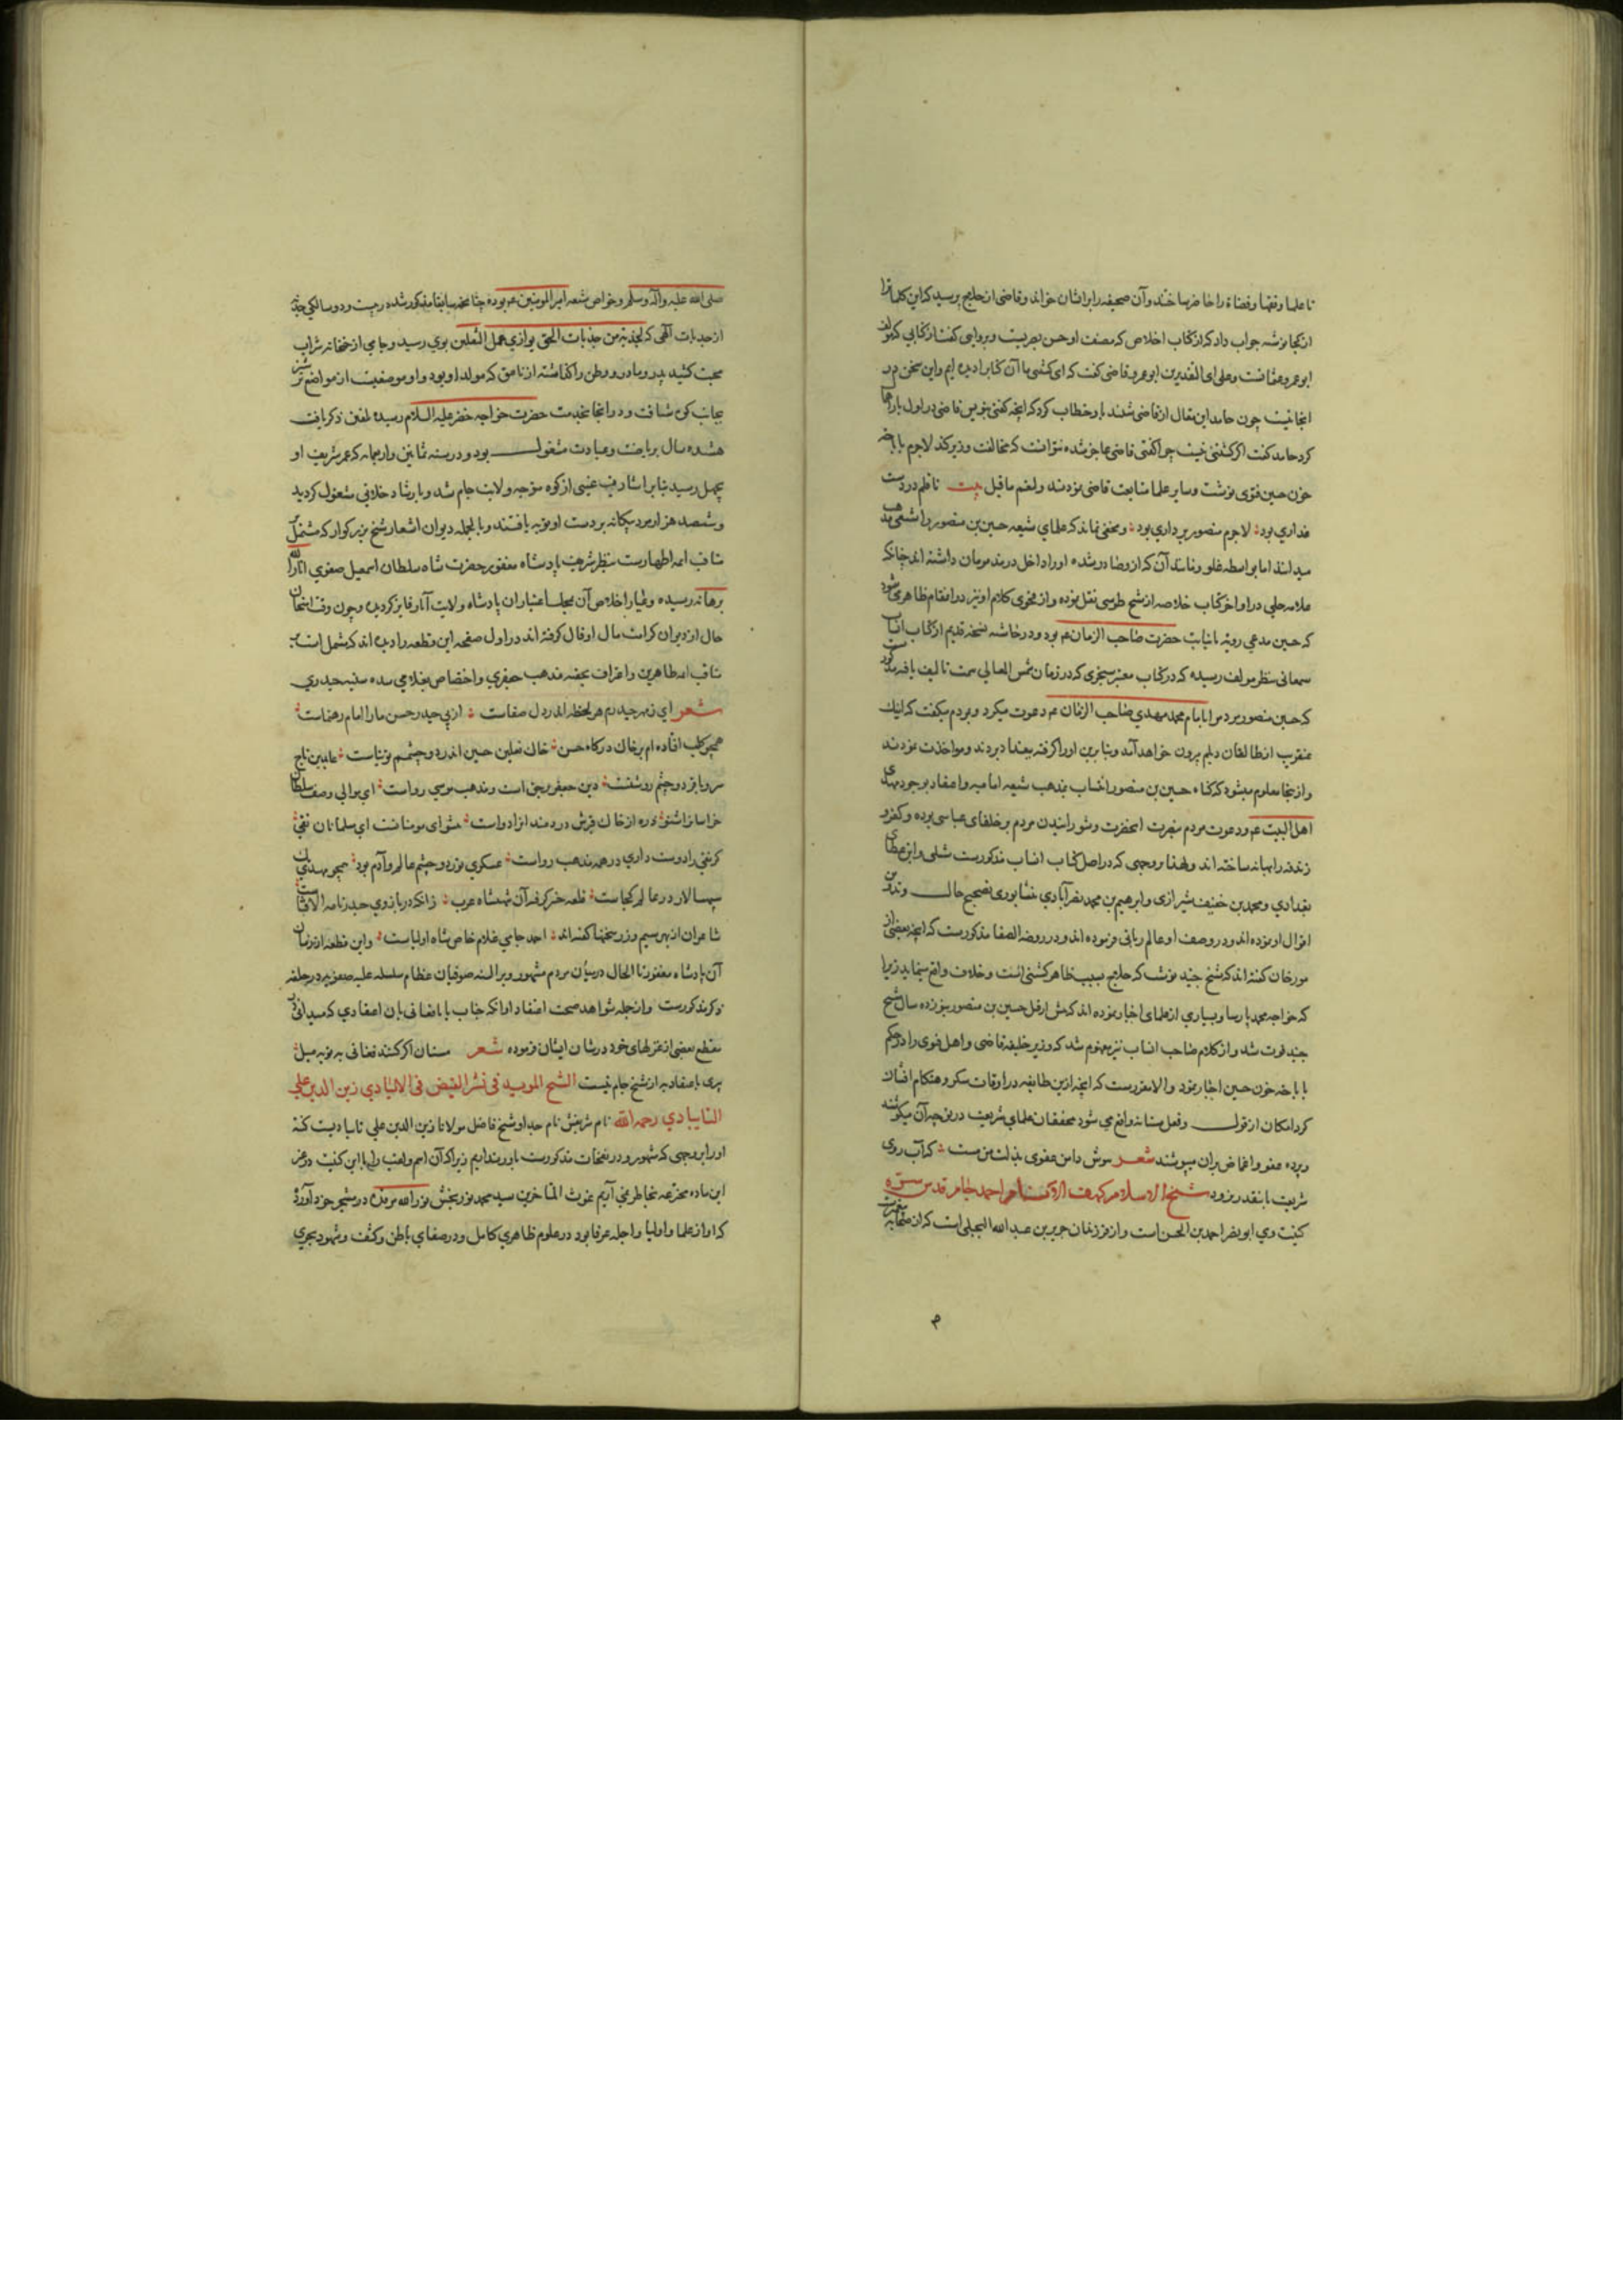 تا علما و فقها و قضاة را حاضر ساختند و آن صحیفه را بر ایشان خواند و قاضی از حلاج پرسید که این کلمات را
از کجا نوشته جواب داد که از کتاب اخلاص که مصنف او حسن بصریست و بروایی گفت از کتابی که مولف
ابو عمرو عثمانست و علی ای التقدیرین ابو عمرو قاضی گفت که ای کشتنی ما آن کتاب را دیده ایم و این سخن در
انجا نیست چون حامد این مقال از قاضی شنید باو خطاب کرد که آنچه گفتی بنویس قاضی در اول بار ابا
کرد حامد گفت اگر کشتنی نیست چرا گفتی قاضی عاجز شده نتوانست که مخالفت وزیر کند لاجرم باباحه
خون حسین فتوی نوشت و سایر علما متابعت قاضی نمودند و لنعم ما قیل بیت تا قلم در دست
غداری بود لاجرم منصور بر داری بود و مخفی نماند که علمای شیعه حسین بن منصور را شیعی مذهب
میدانند اما بواسطه غلو و آن که ازو صادر شده او را داخل در مذمومان داشته اند چنانکه
علامه حلی در اواخر کتاب خلاصه از شیخ طوسی نقل نموده و از فحوی کلام او نیز در انمقام ظاهر می شود
که حسین مدعی رویه یا نیابت حضرت صاحب الزمان عم بود و در حاشیه نسخه قدیم از کتاب انساب
سمعانی بنظر مولف رسیده که در کتاب معتبر سنجری که در زمان شمس المعالی سمت تالیف یافته مذکورست
که حسین منصور مردم را بامام محمد مهدی صاحب الزمان عم دعوت میکرد و بمردم میگفت که اینک
عنقریب از طالقان دیلم بیرون خواهد آمد و بنابرین او را گرفته ببغداد بردند و مواخذت نمودند
و از ینجا معلوم میشود که گناه حسین بن منصور انتساب بمذهب شیعه امامیه و اعتقاد بوجود مهدی
اهل البیت عم و دعوت مردم بنصرت انحضرت و شورانیدن مردم بر خلفای عباسی بوده و کفر و
زندقه را بهانه ساخته اند و لهذا بر وجهی که در اصل کتاب انساب مذکورست شبلی و ابن عطای
بغدادی و محمد بن خفیف شیرازی و ابرهیم بن محمد نصرآبادی نشابوری تصحیح حال و تدوین
اقوال او نموده اند و در وصف او عالم ربانی فرموده اند و در روضه الصفا مذکورست که انچه بعضی از
مورخان گفته اند که شیخ جنید نوشت که حلاج بسبب ظاهر کشتنی است و خلاف واقع مینماید زیرا
که خواجه محمد پارسا و بسیاری از علمای اخبار نموده اند که پیش از قتل حسین بن منصور بنوزده سال شیخ
جنید فوت شد و از کلام صاحب انساب نیز مفهوم شد که وزیر خلیفه قاضی و اهل فتوی را در حکم
باباحه خون حسین اجبار نمود و الامر ... ست که انچه ازین طایفه در اوقات سکر و هنگام افشای
کردامکان از قول و فعل مستانه واقع می شود محققان علمای شریعت در توجیه آن میکوشند
و پرده عفو و اغماض بران میپوشند شعر ... دامن عفوی بذلت من مست که آب روی
شریعت باینقدر نرود شیخ الاسلام کهف الانام احمد جام قدس سره
کنیت وی ابو نصر احمد بن الحسن است و از فرزندان جریر بن عبدالله البجلی است که از صحابه حضرت
صلی الله علیه و آله و سلم و خواص شیعه امیر المومنین عم بوده چنانچه سابقا مذکور شده در بیست و دو سالگی جذبه
از جذبات الهی که لجذبة من جذبات الحق یوازی عمل الثقلین بوی رسید و جامی از خمخانه شراب
محبت کشید پدر و مادر و وطن را گذاشته از نامق که مولد او بود و او موضعیست از مواضع ترشیز
بجانب کوه شتافت و در انجا بخدمت حضرت خواجه خضر علیه السلام رسیده تلقین ذکر یافت
هشده سال بریاضت و عبادت مشغول بود و در سنه ثمانین و اربعمایه که عمر شریف او
بچهل رسید بنا بر اشارت غیبی از کوه متوجه ولایت جام شد و بارشاد خلایق مشغول گردید
و ششصد هزار مرد بیگانه بر دست او توبه یافتند و بالجمله دیوان اشعار شیخ بزرگوار که مشتمل بر
مناقب ایمه اطهارست بنظر شریف پادشاه مغفور حضرت شاه سلطان اسمعیل صفوی انار الله
برهانه رسیده و عیار اخلاص آن بمجلس اعتبار ان پادشاه ولایت آثار فایز گردیده و چون وقت امتحان
حال از دیوان کرامت مال او فال گرفته اند در اول صفحه این قطعه را دیده اند که مشتمل است بر
مناقب ایمه طاهرین و اعتراف بحقیه مذهب جعفری و اختصاص بغلامی سده سنیه حیدری
شعر ای ز مهر حیدرم هر لحظه اندر دل صفاست از پی حیدر حسن ما را امام رهنماست
همچو کلب افتاده ام بر خاک درگاه حسن خاک نعلین حسین اندر دو چشمم توتیاست عابدین تاج
سر و باقر دو چشم روشنست دین جعفر بر حق است و مذهب موسی رواست ای موالی وصف سلطان
خراسان را شنو ذره از خاک قبرش دردمند انرا دواست پیشوای مومنانست ای مسلمانان تقی
گر نقی را دوست داری در همه مذهب رواست عسکری نور دو چشم عالم و آدم بود همچو مهدی یک
سپهسالار در عالم کجاست قلعه خیبر گرفته آن شهنشاه عرب زانکه در بازوی حیدر نامه الافتاست
شاعران از بهر سیم و زر سخنها گفته اند احمد جامی غلام خاص شاه اولیاست و این قطعه از زمان
آن پادشاه مغفور تا الحال در میان مردم مشهور و بر السنه صوفیان عظام سلسله علیه صفویه در حلقه
ذکر مذکورست و از جمله شواهد صحت اعتقاد او انکه جناب بابا فغانی بان اعتقادی که میدانی در
مقطع بعضی از غزلهای خود در شان ایشان فرموده شعر مستان اگر کنند فغانی به توبه میل
پیری باعتقاد به از شیخ جام نیست الشیخ الموید فی نشر الفیض فی الایادی زین الدین علی
التایبادی رحمه الله نام شریفش نام جد او شیخ فاضل مولانا زین الدین علی تایبادیست کنیت
او را بر وجهی که مشهور و در نفحات مذکورست باور نداریم زیرا که آن اسم و لقب را با این کنیت در غیر
این ماده مخترعه بخاطر نمی آریم غوث المتاخرین سید محمد نوربخش نور الله مرقده در مشجر خود آورده
که او از علما و اولیا و اجله عرفا بود در علوم ظاهری کامل و در صفای باطن و کشف و شهود بحری